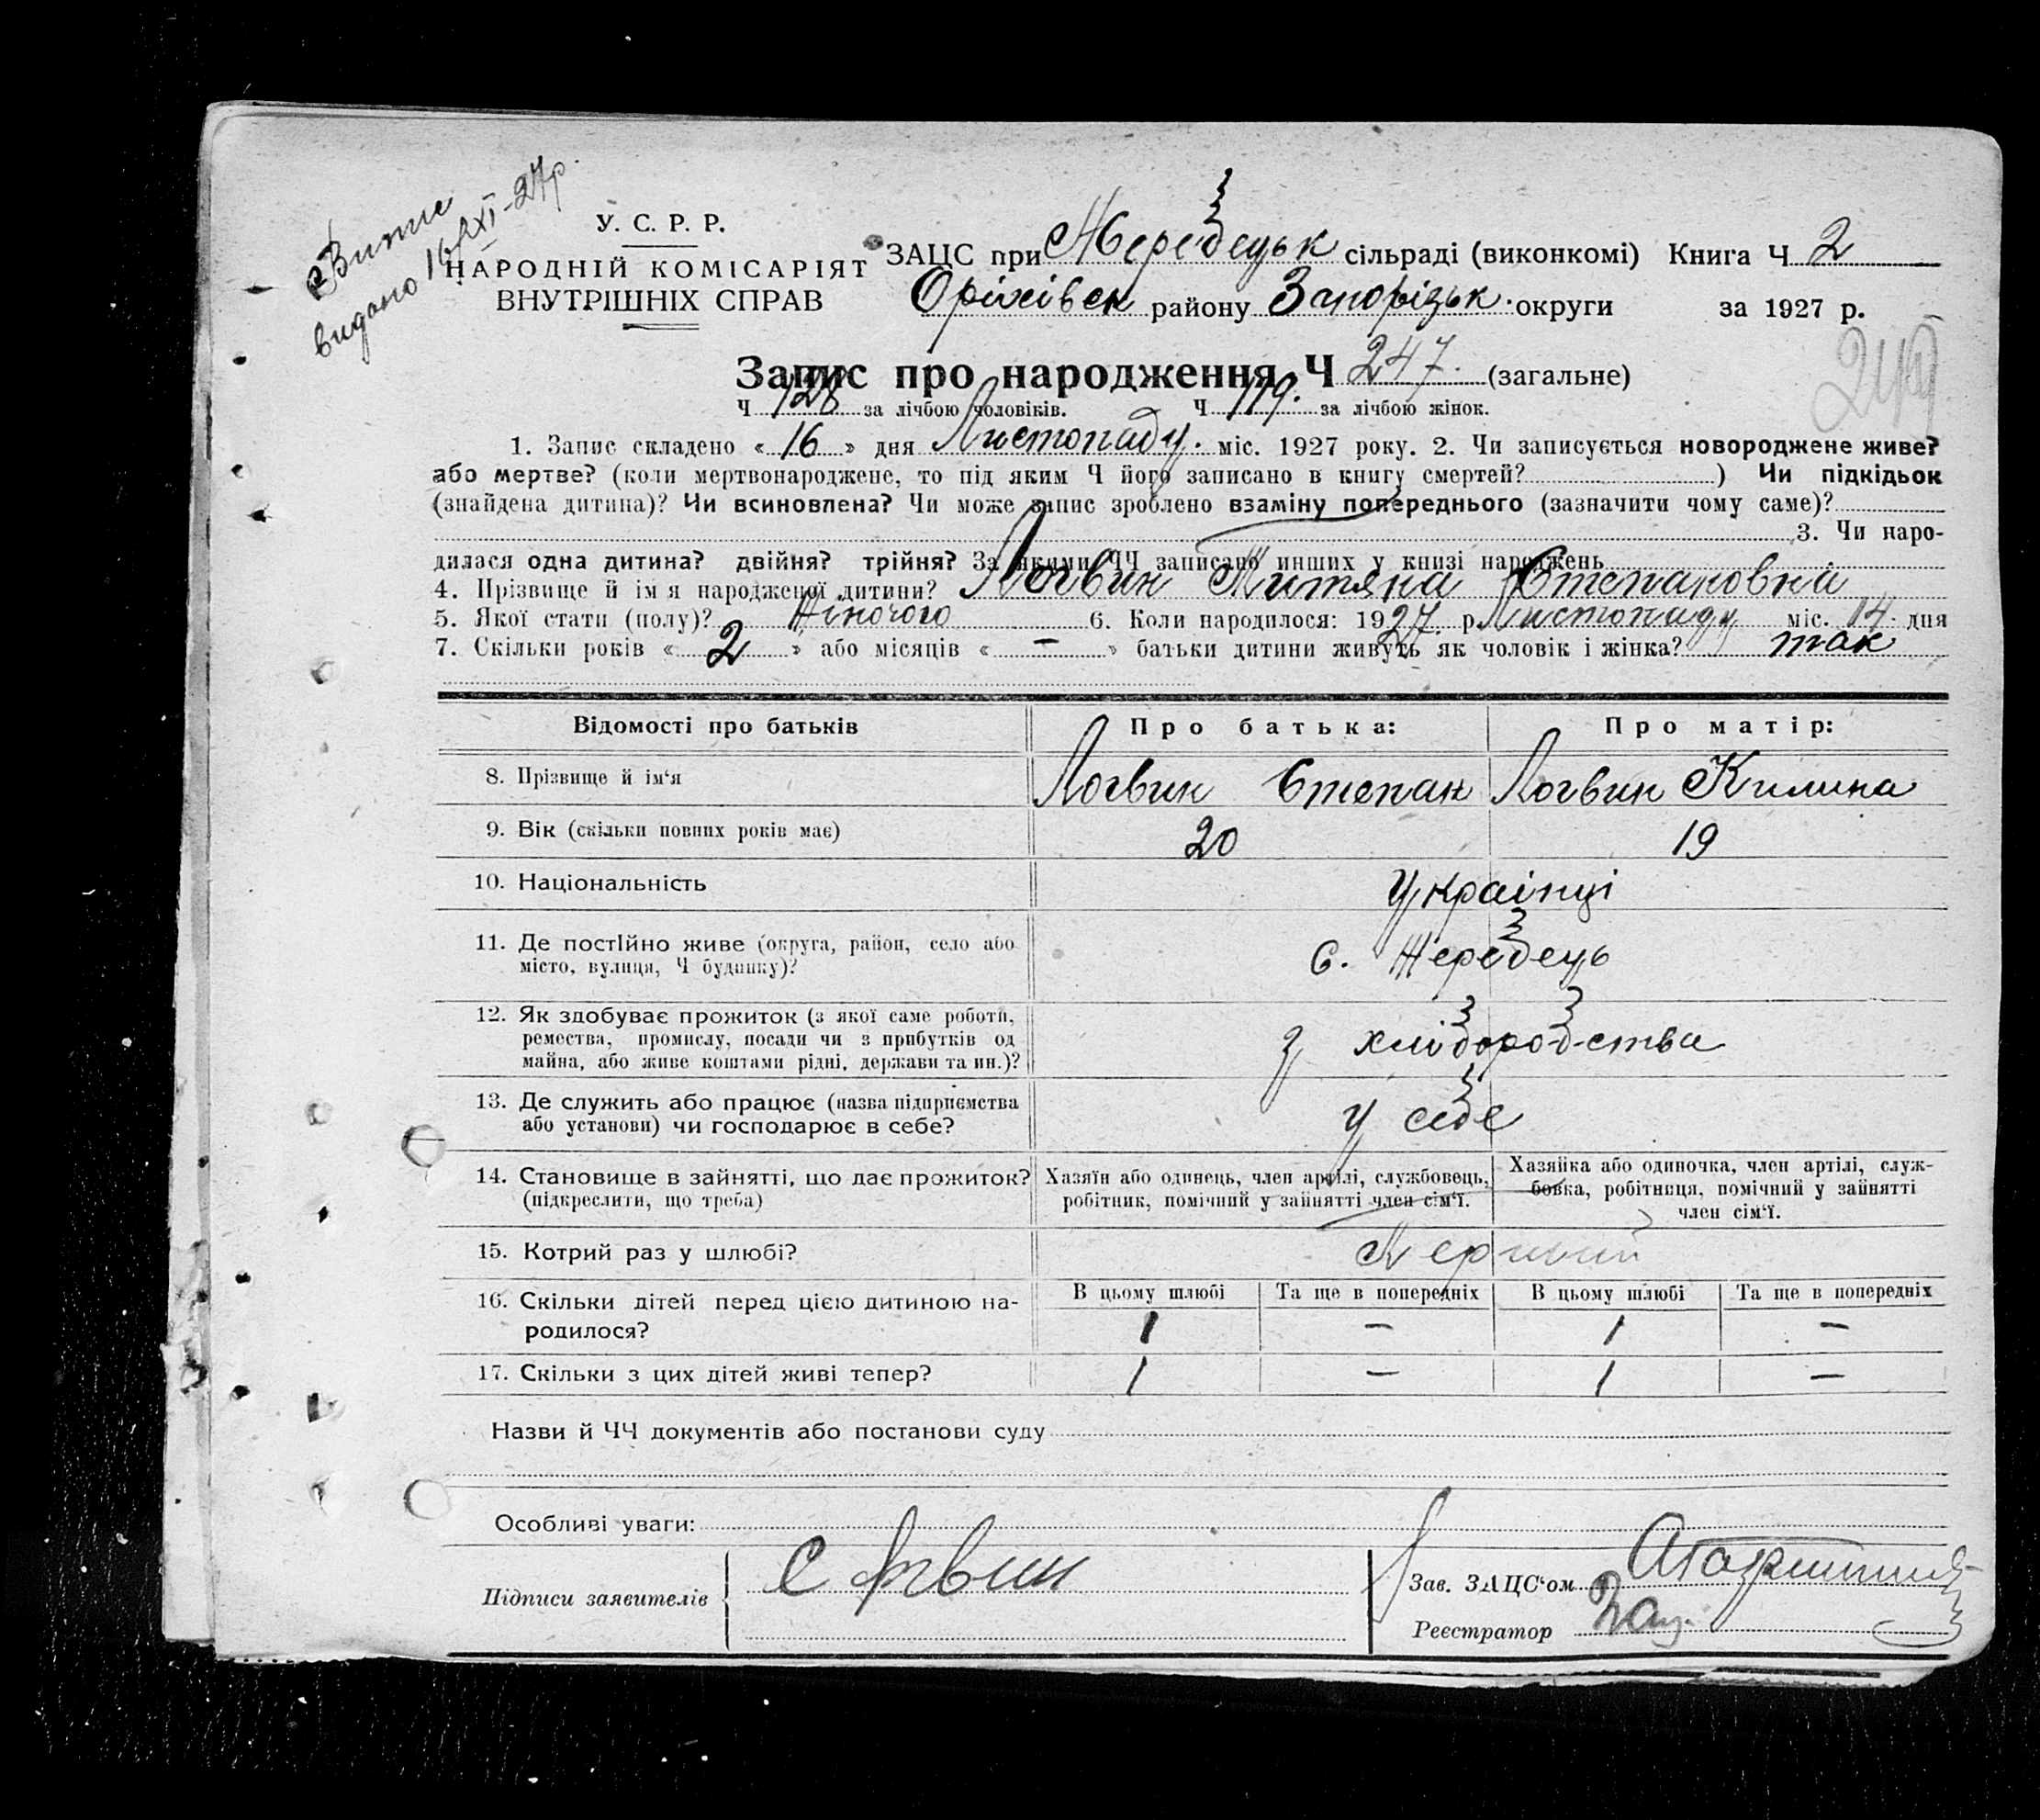 Витис
видано 16/XI-27р.
У. С. Р. Р.
НАРОДНІЙ КОМІСАРІЯТ
ВНУТРІШНІХ СПРАВ
ЗАЦС при Жеребецьк сільраді (виконкомі) Книга Ч 2
Оріхівськ району Запорізьк. округи за 1927 р.
Запис про народження Ч 247. (загальне)
Ч 128 за лічбою чоловіків. Ч 119. за лічбою жінок.
1. Запис складено « 16 » дня Листопаду. міс. 1927 року. 2. Чи записується новороджене живе?
або мертве? (коли мертвонароджене, то під яким Ч його записано в книгу смертей? ) Чи підкідьок
(знайдена дитина)? Чи всиновлена? Чи може запис зроблено взаміну попереднього (зазначити чому саме)?
3. Чи наро-
дилася одна дитина? двійня? трійня? За якими ЧЧ записано инших у книзі народжень
4. Прізвище й ім я народженої дитини? Логвин Титяна Степановна
5. Якої стати (полу)? Жіночого 6. Коли народилося: 1927. р. Листопаду міс. 14. дня
7. Скільки років « 2 » або місяців « — » батьки дитини живуть як чоловік і жінка? так
Відомості про батьків Про батька: Про матір:
8. Прізвище й ім'я Логвин Степан Логвин Килина
9. Вік (скільки повних років має) 20 19
10. Національність Українці
11. Де постійно живе (округа, район, село або
місто, вулиця, Ч будинку)? с. Жеребець
12. Як здобуває прожиток (з якої саме роботи,
ремества, промислу, посади чи з прибутків од
майна, або живе коштами рідні, держави та ин.)? з хліборобства
13. Де служить або працює (назва підприємства
або установи) чи господарює в себе? у себе
14. Становище в зайнятті, що дає прожиток?
(підкреслити, що треба)
Хазяїн або одинець, член артілі, службовець,
робітник, помічний у зайнятті член сім'ї.
Хазяйка або одиночка, член артілі, служ-
бовка, робітниця, помічний у зайнятті
член сім'ї.
15. Котрий раз у шлюбі? Первий
16. Скільки дітей перед цією дитиною на-
родилося?
В цьому шлюбі Та ще в попередніх В цьому шлюбі Та ще в попередніх
1 — 1 —
17. Скільки з цих дітей живі тепер? 1 — 1 —
Назви й ЧЧ документів або постанови суду
Особливі уваги:
Підписи заявителів С Логвин
Зав. ЗАЦС'ом
Реєстратор